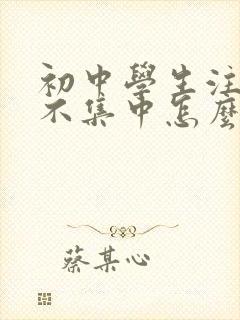 初中學生注
不集中怎麼
蔡某心